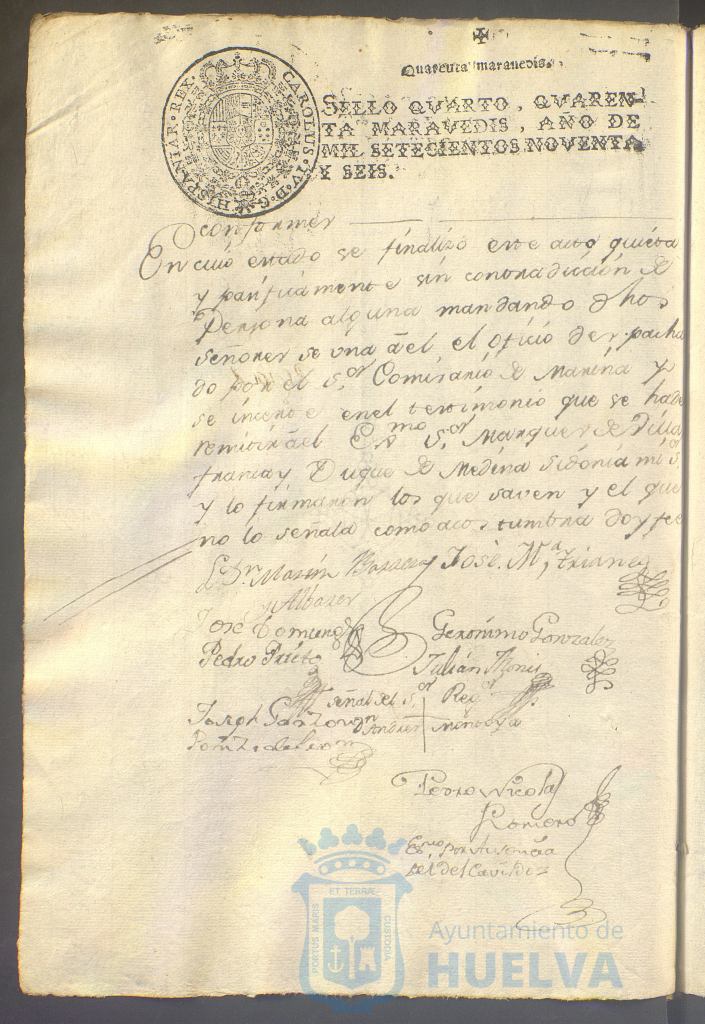 Quarenta maravedis.
SELLO QVARTO, QVAREN-
TA MARAVEDIS, AÑO DE
MIL SETECIENTOS NOVENTA
Y SEIS.
CAROLUS IV D. G. HISPANIAR. REX.
conformes
En cuio estado se finalizó este acto quieta
y pacificamente sin contradiccion de
Persona alguna mandando dhos
señores se una á el el oficio despacha
do por el S.or Comisario de Marina y
se incerte en el testimonio que se ha de
remitir á el Exmo S.or Marques de Villa
franca y Duque de Medina Sidonia mi S.or
y lo firmaron los que saven y el que
no lo señala como acostumbra doy fee
Ldn. Martin Barrera y José M.a Trianes
Albarez
José Doming
Geronimo Gonzalez
Pedro Prieto
Julián
señal del S.or Reg.or
Joseph
Andres Mendoza
Ponze de Leon
Pedro Nicolas
Romero
Esno por Ausencia
del del Cavildo
ET TERRAE
PORTUS MARIS
CUSTODIA
Ayuntamiento de
HUELVA